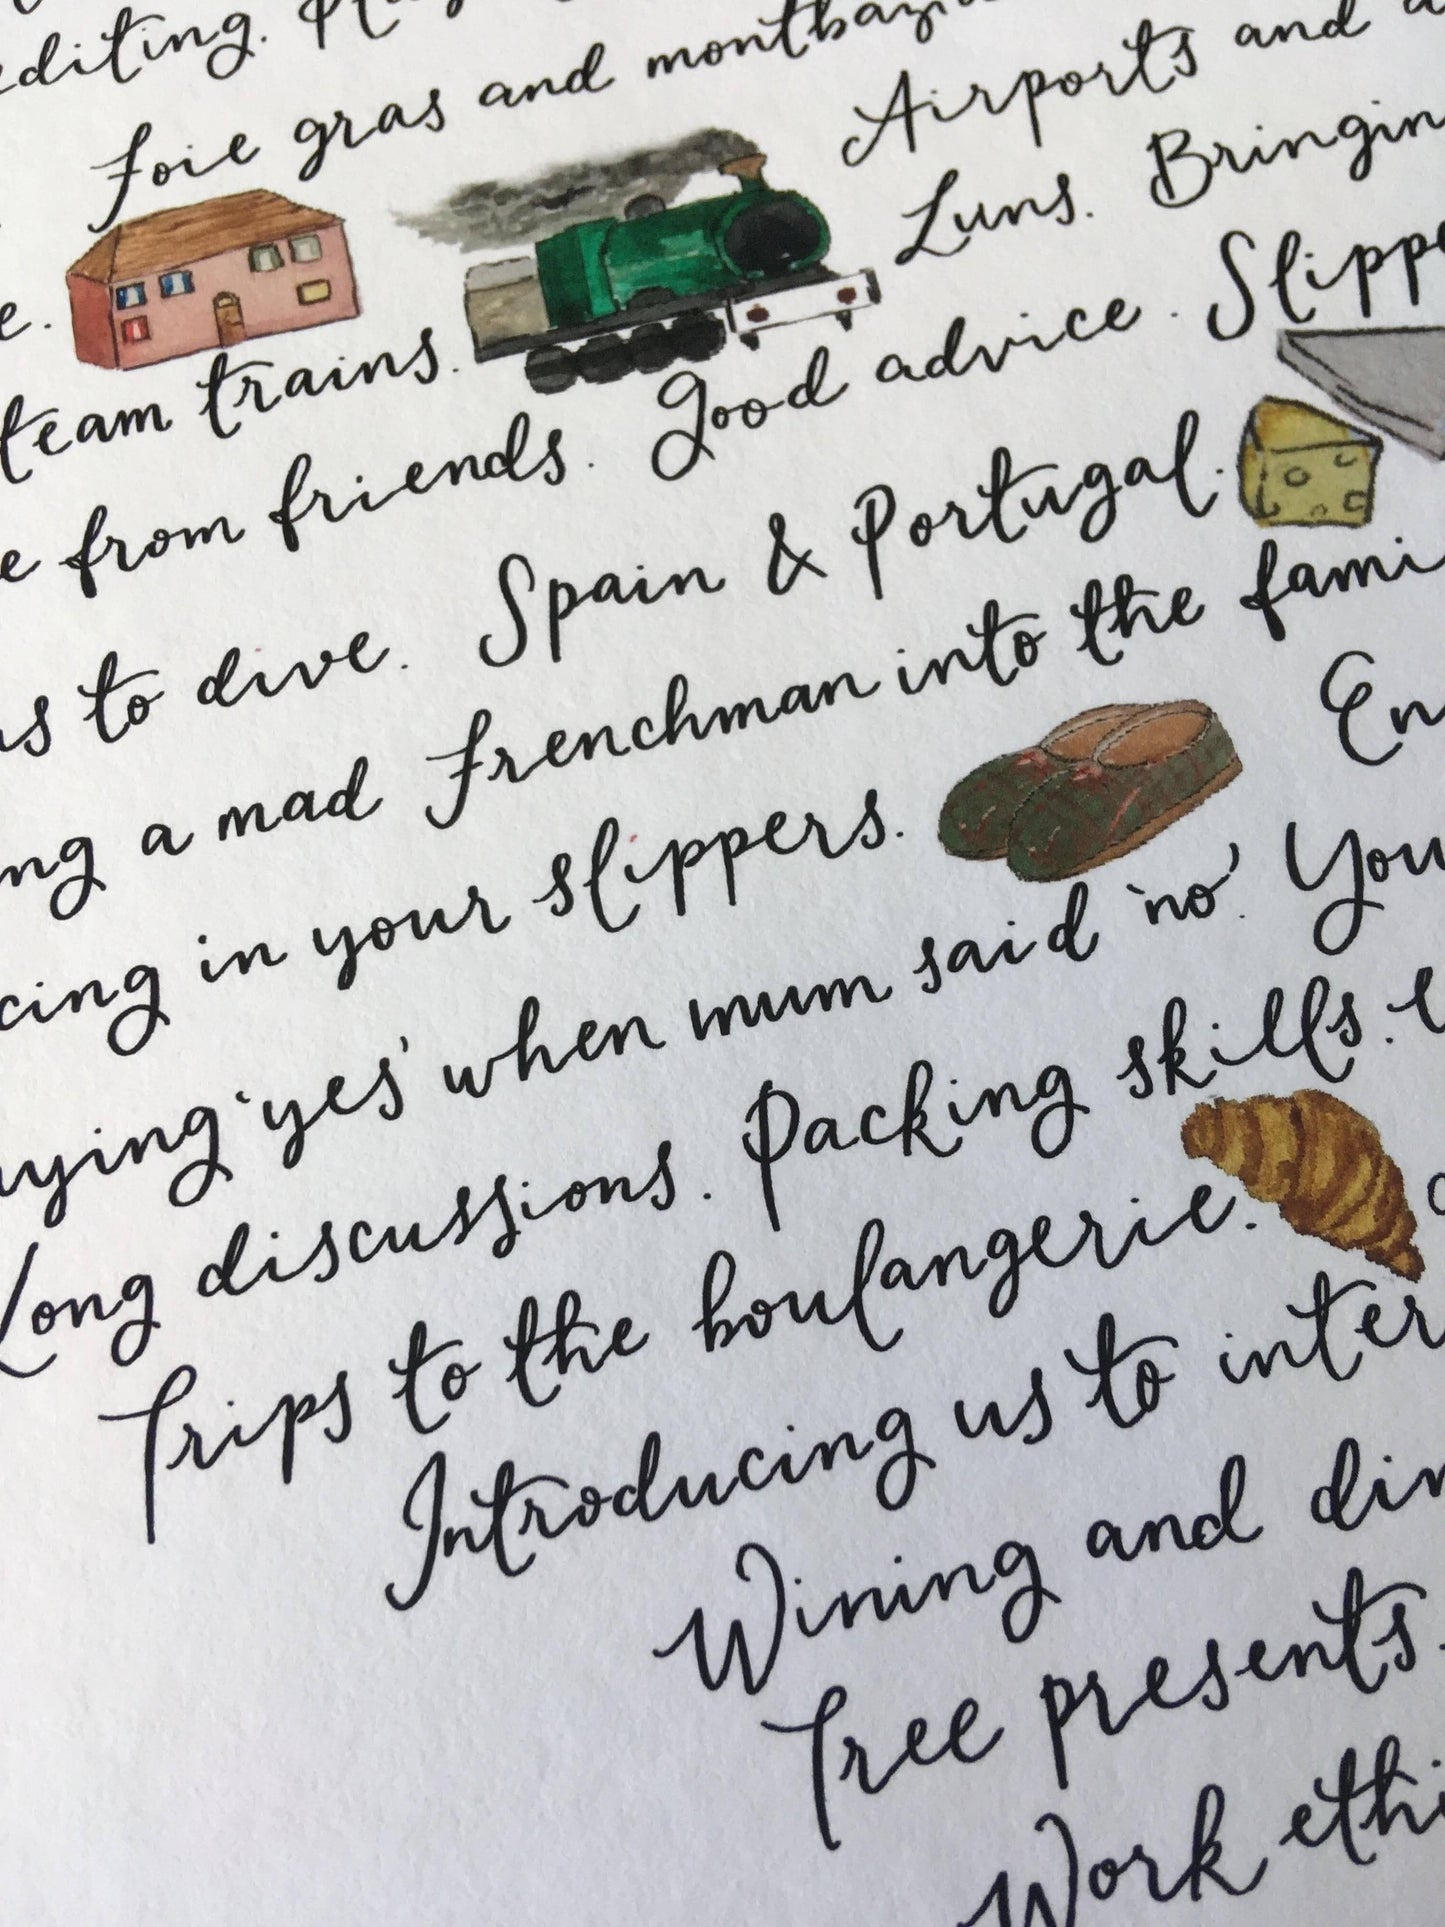 editing.
Foie gras and
Airports and
Luns. Bringing
team trains.
from friends. Good advice. Slippe
to dive. Spain & Portugal.
a mad Frenchman into the fami
cing in your slippers. En
'yes' when mum said 'no'. You
Long discussions. Packing skills.
Trips to the boulangerie.
Introducing us to inter
Wining and din
Tree presents.
Work ethi